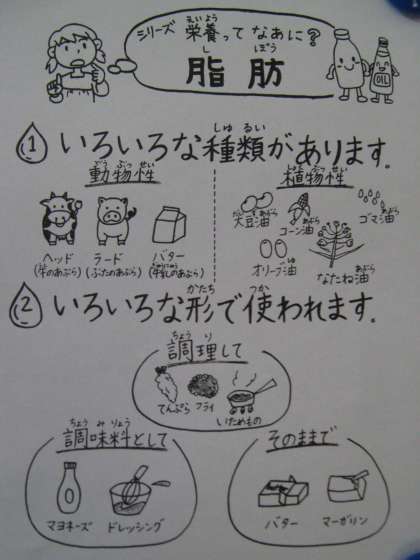 シリーズ 栄養ってなあに?
えいよう
脂肪
し ぼう
OIL
① いろいろな種類があります。
しゅ るい
動物性
どう ぶっ せい
植物性
しょく ぶっ せい
ヘッド
(牛のあぶら)
ラード
(ぶたのあぶら)
バター
(牛乳のあぶら)
大豆油
コーン油
ゴマ油
オリーブ油
なたね油
② いろいろな形で使われます。
かたち つか
調理して
ちょう り
てんぷら
フライ
いためもの
調味料として
ちょう み りょう
マヨネーズ
ドレッシング
そのままで
バター
マーガリン